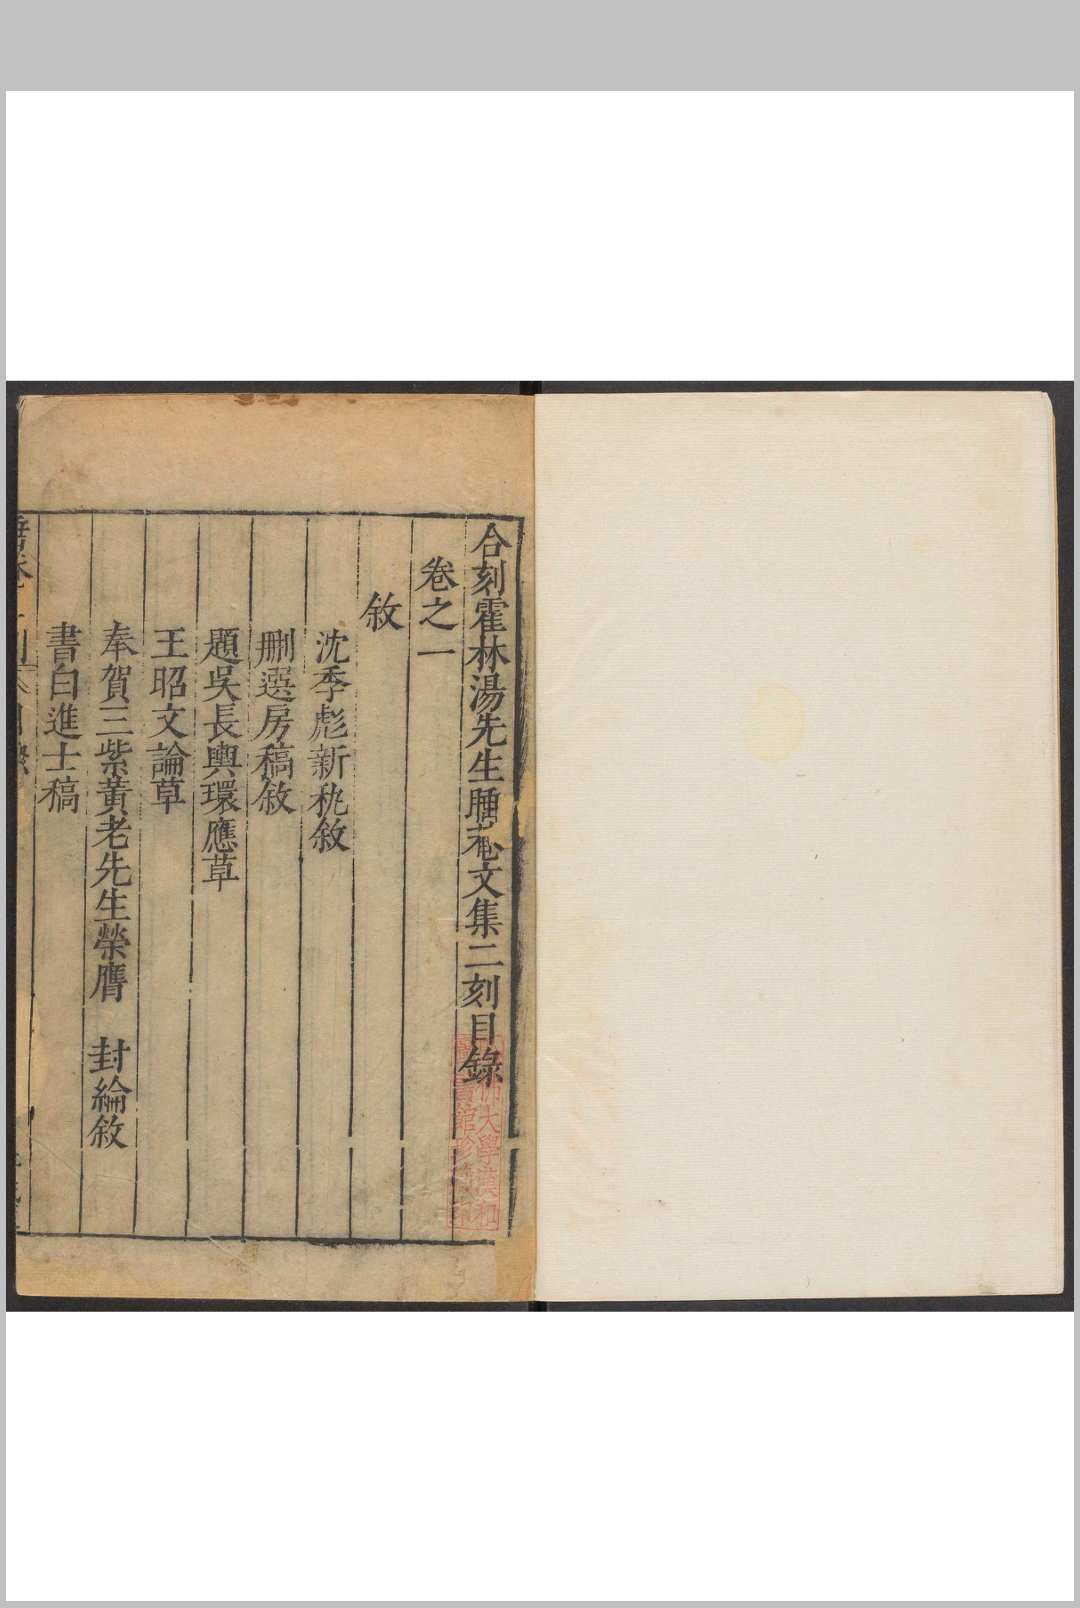 合刻霍林湯先生睡菴文集二刻目錄
卷之一
敘
沈季彪新秇敘
刪選房稿敘
題吳長輿環應草
王昭文論草
奉賀三紫黃老先生榮膺 封綸敘
書白進士稿
大學漢和
圖書館珍藏印